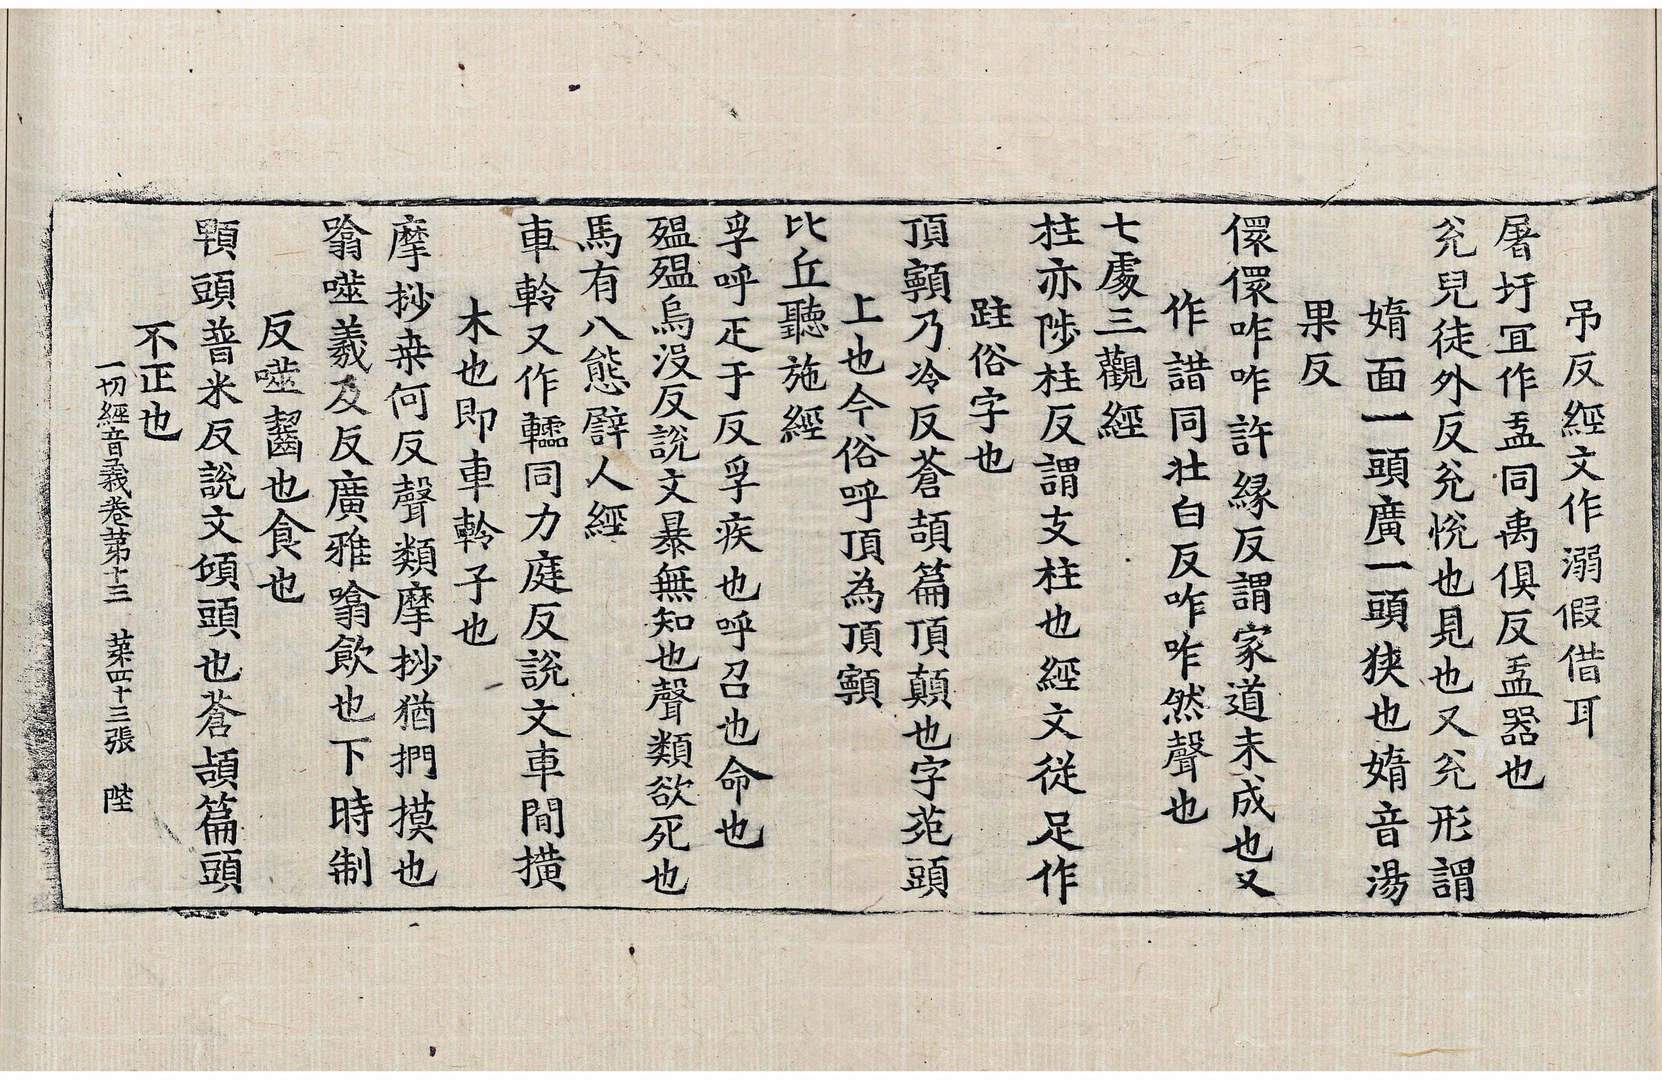 吊反經文作溺假借耳
屠圩冝作盓同禹俱反盓器也
兊兒徒外反兊悅也見也又兊形謂
媠面一頭廣一頭狹也媠音湯
果反
儇儇咋咋許緣反謂家道未成也又
作諎同壯白反咋咋然聲也
七處三觀經
柱亦陟柱反謂支柱也經文從足作
跓俗字也
頂顊乃冷反蒼頡篇頂顛也字苑頭
上也今俗呼頂為頂顊
比丘聽施經
孚呼疋于反孚疾也呼召也命也
殟殟烏沒反說文暴無知也聲類欲死也
馬有八態譬人經
車軨又作轜同力庭反說文車間撗
木也即車軨子也
摩挱桒何反聲類摩挱猶捫摸也
噏噬羲及反廣雅噏飲也下時制
反噬齧也食也
頓頭普米反說文傾頭也蒼頡篇頭
不正也
一切經音義卷苐十三　苐四十三張　陛